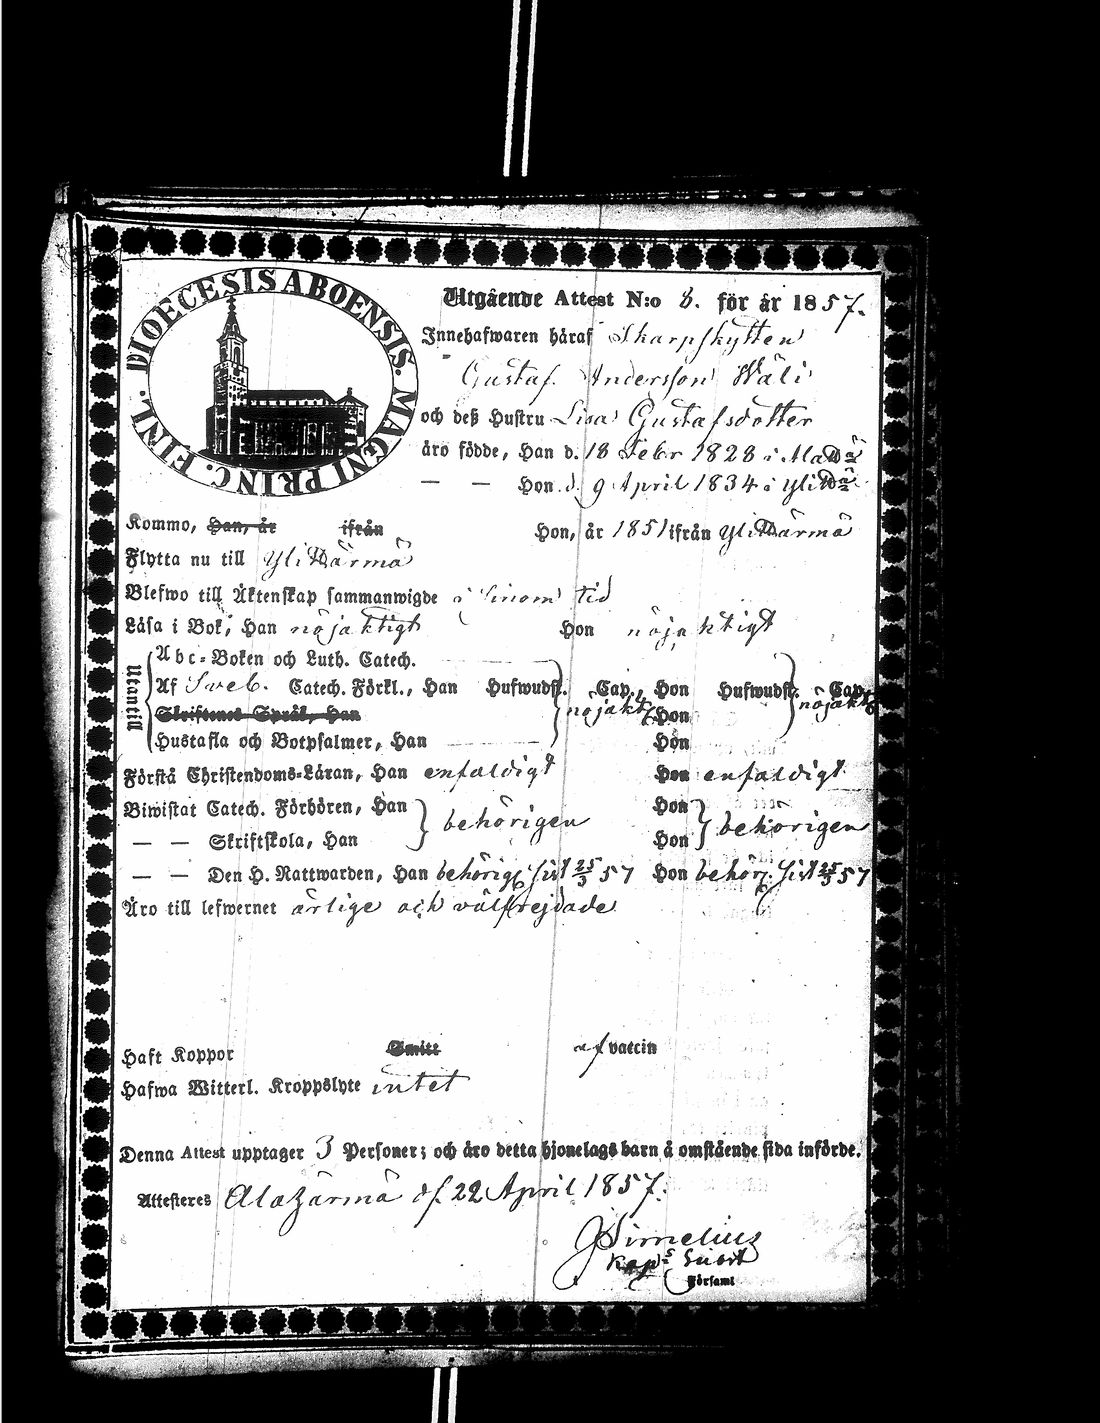 DIOECESIS ABOENSIS. MAGNI PRINC. FINL.
Utgående Attest N:o 8. för år 1857.
Innehafwaren häraf Skarpskytten
Gustaf Andersson Wäli
och deß Hustru Lisa Gustafsdotter
äro födde, Han d. 18 Febr 1828 i
— — Hon d. 9 April 1834 i
Kommo, Han, år ifrån Hon, år 1851 ifrån Ylihärmä
Flytta nu till Ylihärmä
Blefwo till Äktenskap sammanwigde i sinom tid
Läsa i Bok, Han nöjaktigt Hon nöjaktigt
Utantill
Abc-Boken och Luth. Catech.
Af Sveb. Catech. Förkl., Han Hufwudst. Cap., Hon Hufwudst. Cap.
Skriftenes Språk, Han nöjakt Hon nöjakt
Hustafla och Botpsalmer, Han Hon
Förstå Christendoms-Läran, Han enfaldigt Hon enfaldigt
Biwistat Catech. Förhören, Han behörigen Hon behörigen
— — Skriftskola, Han Hon
— — Den H. Nattwarden, Han behörig. sist 25/3 57 Hon behör. sist 25/3 57
Äro till lefwernet ärlige och välfrejdade
Haft Koppor Smitt af vaccin
Hafwa Witterl. Kroppslyte intet
Denna Attest upptager 3 Personer; och äro detta hjonelags barn å omstående sida införde.
Attesteras Alahärmä d. 22 April 1857.
Kap:s
Församl